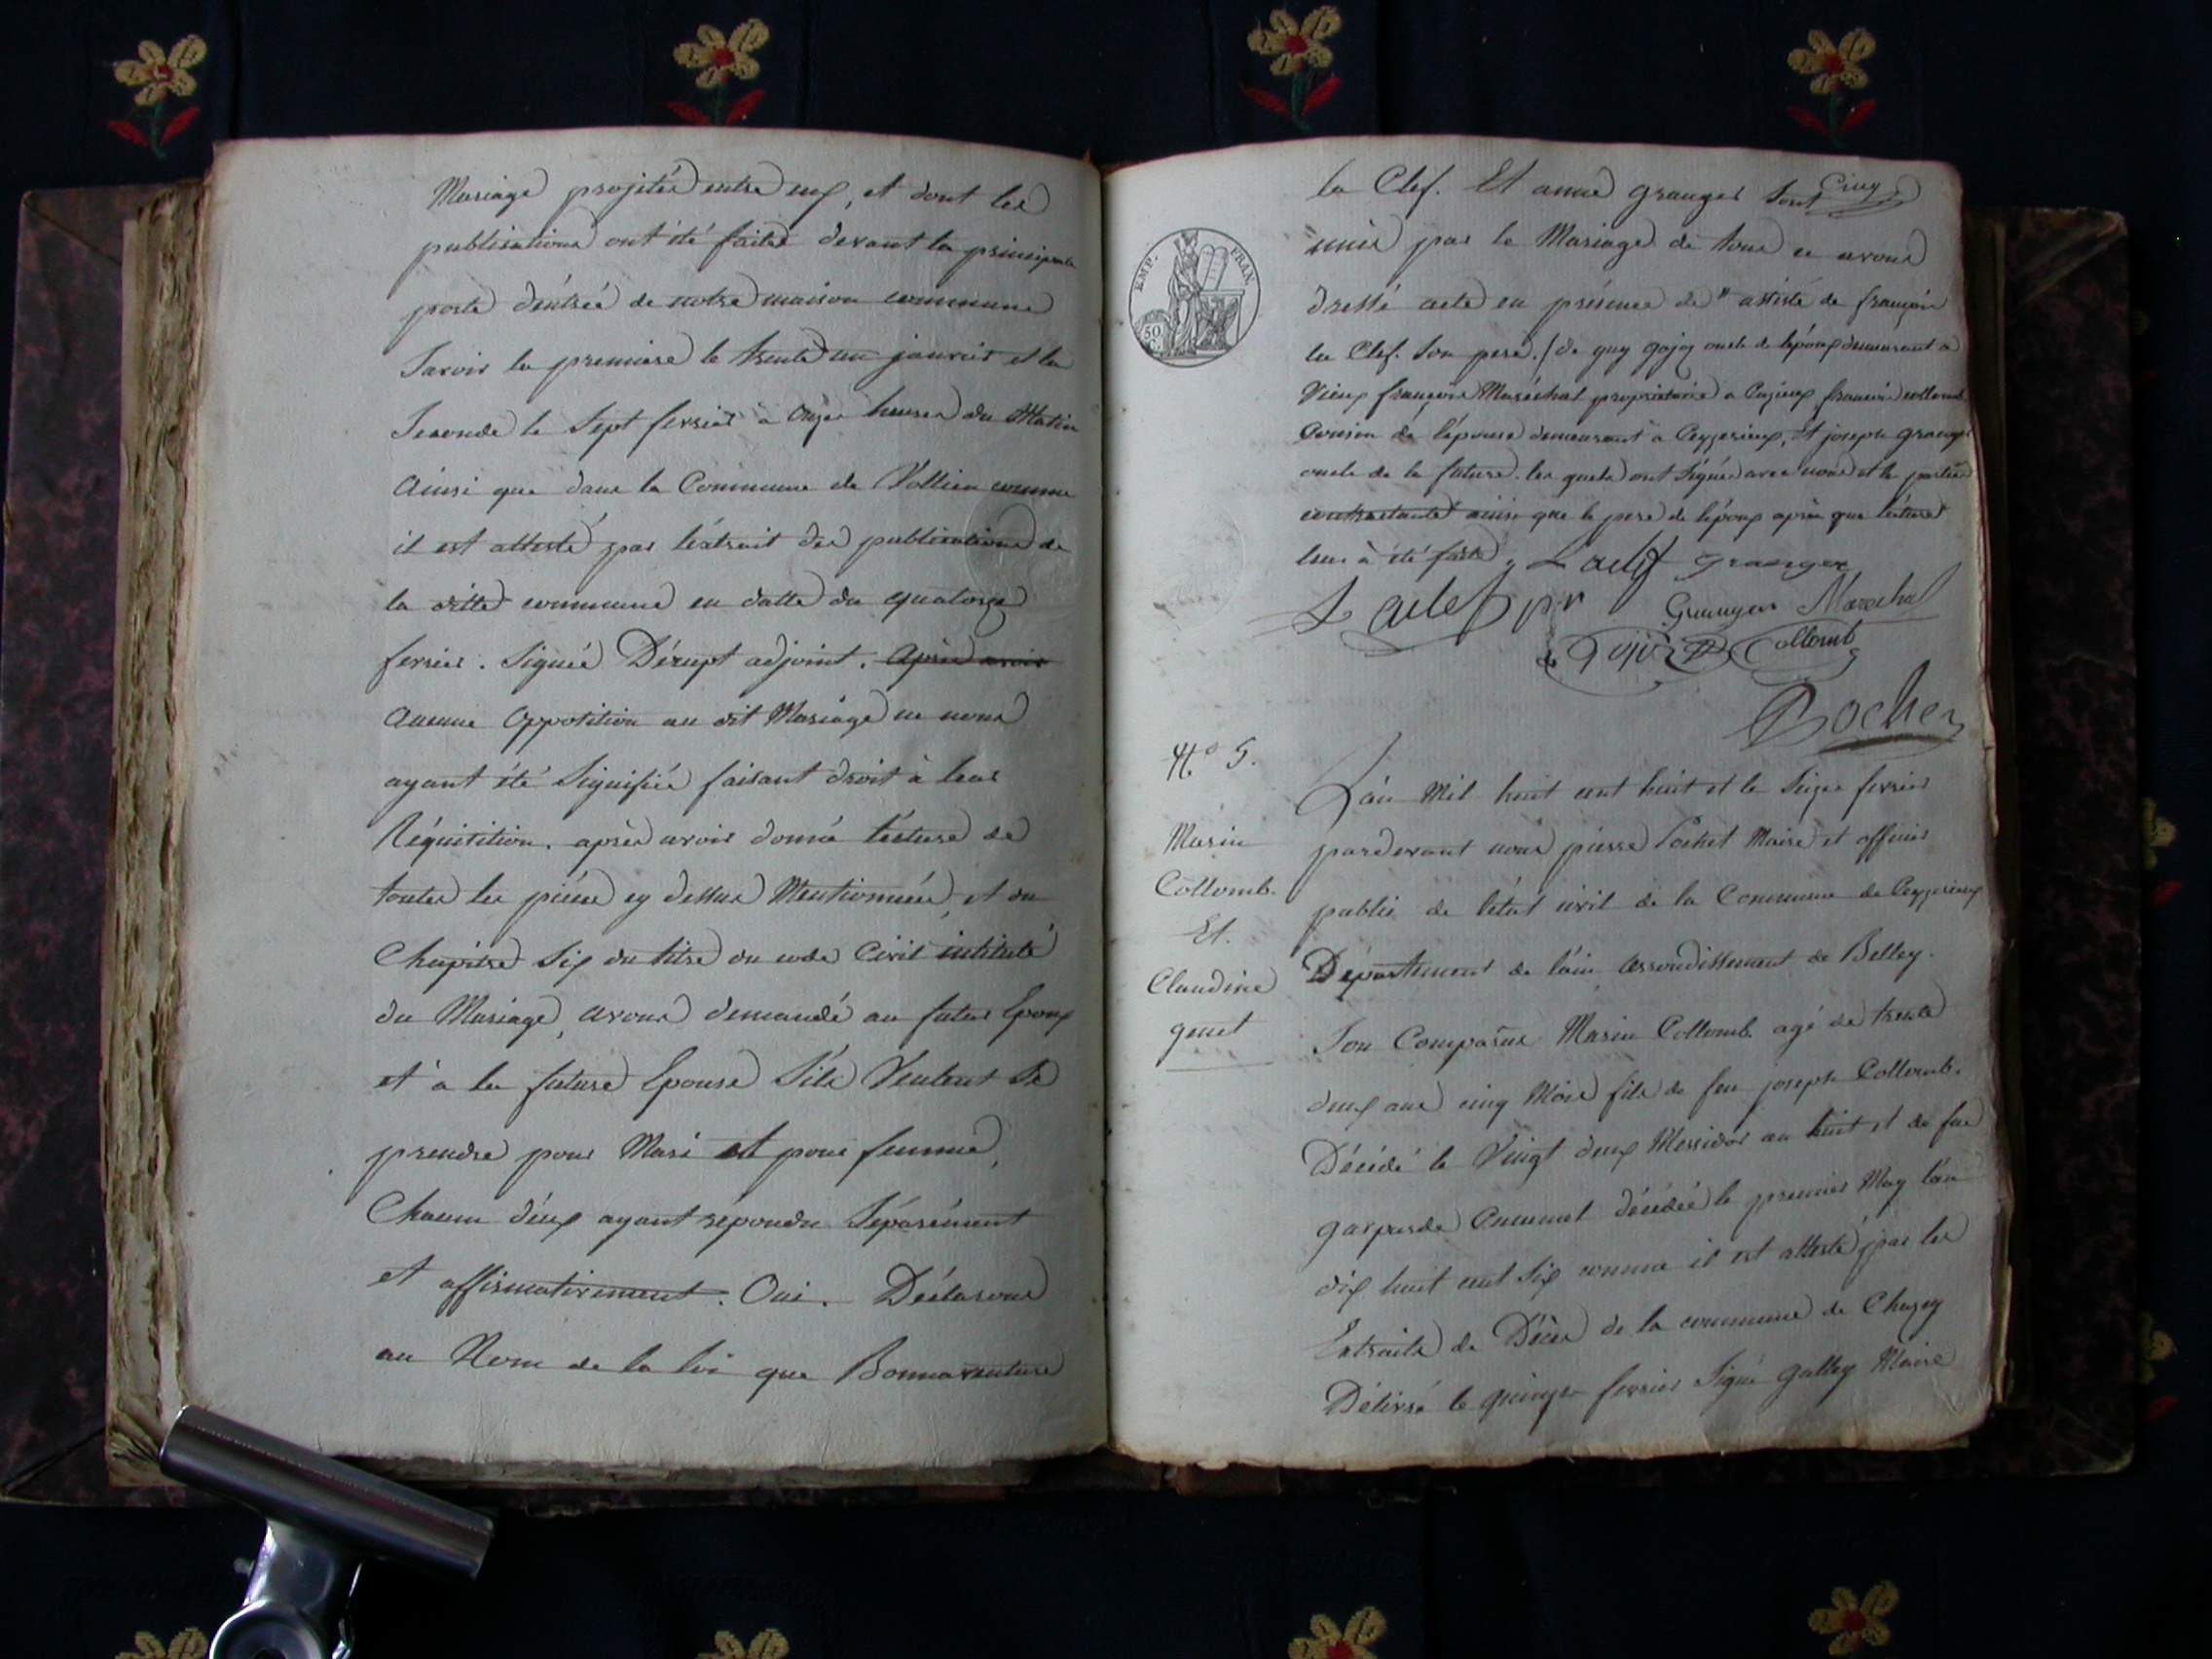 Mariage projetée entre eux, et dont les
publications ont été faites devant la principale
porte d'entrée de notre maison commune
Savoir la premiere le trente un janvier et la
Seconde le Sept fevrier à onze heures du Matin
Ainsi que dans la Commune de Vollien comme
il est attesté par l'extrait des publications de
la ditte commune en datte du quatorze
fevrier. Signée Dérupt adjoint. Après avoir
Aucune Opposition au dit Mariage ne nous
ayant été Signifiée faisant droit à leur
Réquisition. après avoir donné lécture de
toutes les piéces cy dessus Mentionnées, et du
Chapitre Six du titre du code Civil intitulé
du Mariage, avons demandé au futur Epoux
et à la future Epouse S'ils Veulent Se
prendre pour Mari et pour femme,
Chacun d'eux ayant repondu Séparément
et affirmativement. Oui. Déclarons
au Nom de la loi que Bonnaventure
Cinq
la Clef. Et anne granger Sont
EMP. FRAN.
50
unis par le Mariage de tous ce avons
dressé acte en présence de assisté de françois
la Clef. Son pere./ de guy gojoz oncle de l'époux demeurant à
Vieux françois Maréchal proprietaire a francois collomb
Cousin de l'épouse demeurant à Ceyzerieux, Et joseph granger
oncle de la future. les quels ont Signés avec nous et les parties
contractantes ainsi que le pere de l'époux après que lécture
leur à été faite, Laclef granger
Laclef pr Granger Marechal
Collomb
Pochet
N.o 5.
Marin
Collomb.
Et.
Claudine
genet
L'an Mil huit cent huit et le Seize fevrier
pardevant nous pierre Pochet Maire et officier
public de l'état civil de la Commune de Ceyzerieux
Département de l'ain arrondissement de Belley.
Son Comparus Marin Collomb. agé de trente
deux ans cinq Mois fils de feu joseph Collomb.
Décédé le Vingt deux Messidor an huit et de feue
décédée le premier May l'an
dix huit cent Six comme il est attesté par les
Extraits de Décès de la commune de Chazey
Délivré le quinze fevrier Signé gallay Maire